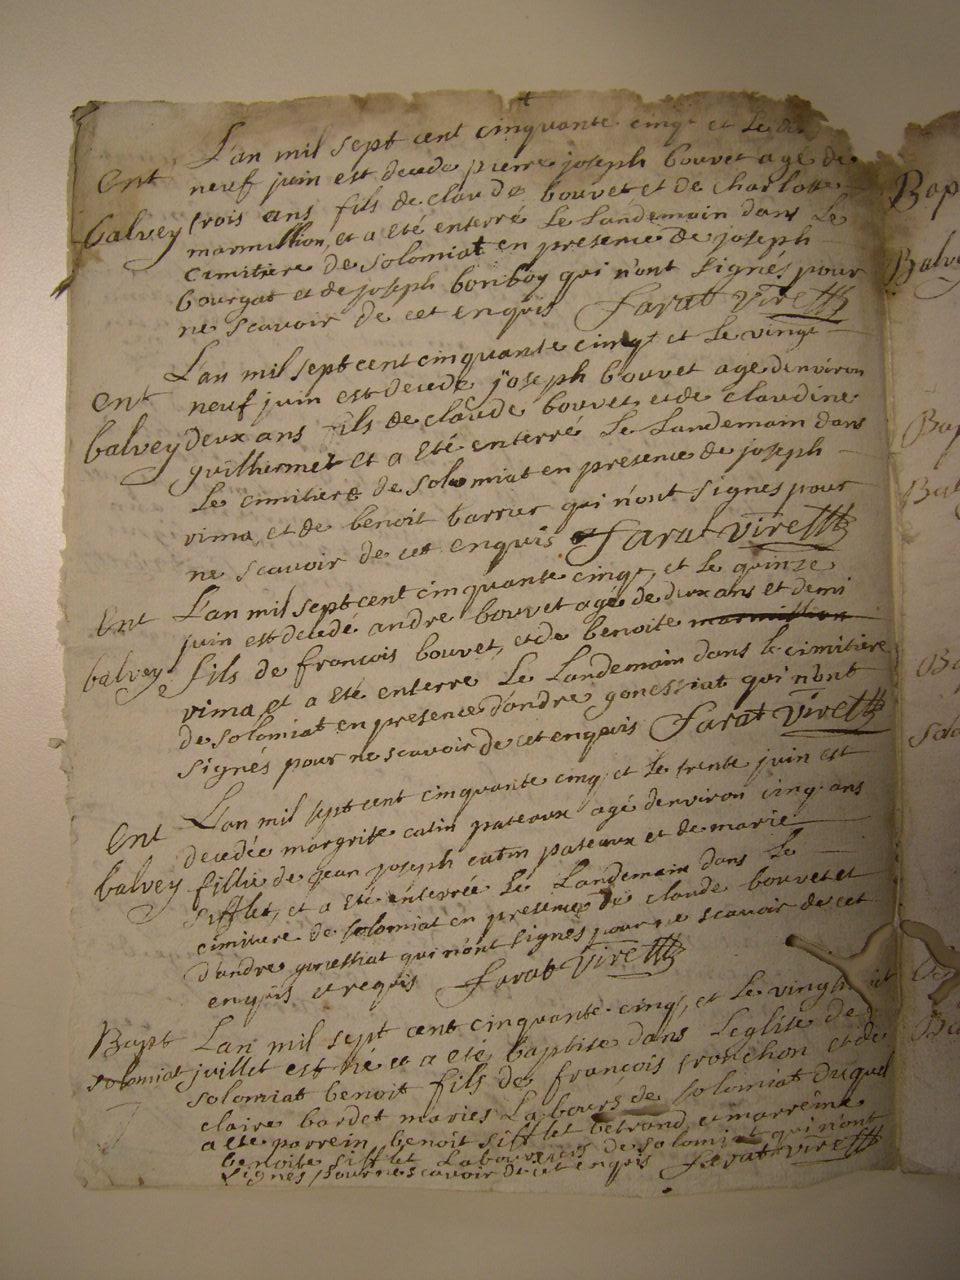 L'an mil sept cent cinquante cinq et le dix
Ent neuf juin est decede pierre joseph bouvet agé de
trois ans fils de claude bouvet et de charlotte
balvey marmillion, et a eté enterré le Landemain dans le
cimitiere de solomiat en presence de joseph
bourgat et de joseph bonboy qui n'ont signés pour
ne scavoir de cet enquis farat viret
L'an mil sept cent cinquante cinq et le vingt
Ent neuf juin est decede joseph bouvet age denviron
balvey deux ans fils de claude bouvet et de claudine
guilhermet et a eté enterre le Landemain dans
le cimitiere de solomiat en presence de joseph
vima, et de benoit barrur qui n'ont signes pour
ne scavoir de cet enquis farat viret
L'an mil sept cent cinquante cinq, et le quinze
Ent juin est decedé andre bouvet agé de deux ans et demi
balvey fils de francois bouvet, et de benoite marmillion
vima et a eté enterre le Landemain dans le cimitiere
de solomiat en presence d'andre gonessiat qui n'ont
signés pour ne scavoir de cet enquis farat viret
L'an mil sept cent cinquante cinq et le trente juin est
Ent decedée margrite catin pateaux agé denviron cinq ans
balvey fillie de jean joseph catin pateaux et de marie
sifflet, et a eté enterrée le Landemain dans le
cimitiere de solomiat en presence de claude bouvet et
d'andre gonessiat qui n'ont signés pour ne scavoir de cet
enquis et requis farat viret
Bapt Lan mil sept cent cinquante cinq, et le vingt
solomiat juillet est né et a eté baptise dans leglise de
solomiat benoit fils de francois tronchon et de
claire bardet maries Labours de solomiat duquel
a ete parrein benoit sifflet betrand, et marreine
benoite sifflet Laboureurs de solomiat qui n'ont
signes pour ne scavoir de cet enquis farat viret
Bap
Balve
Bap
Bal
Ba
solo
Ba